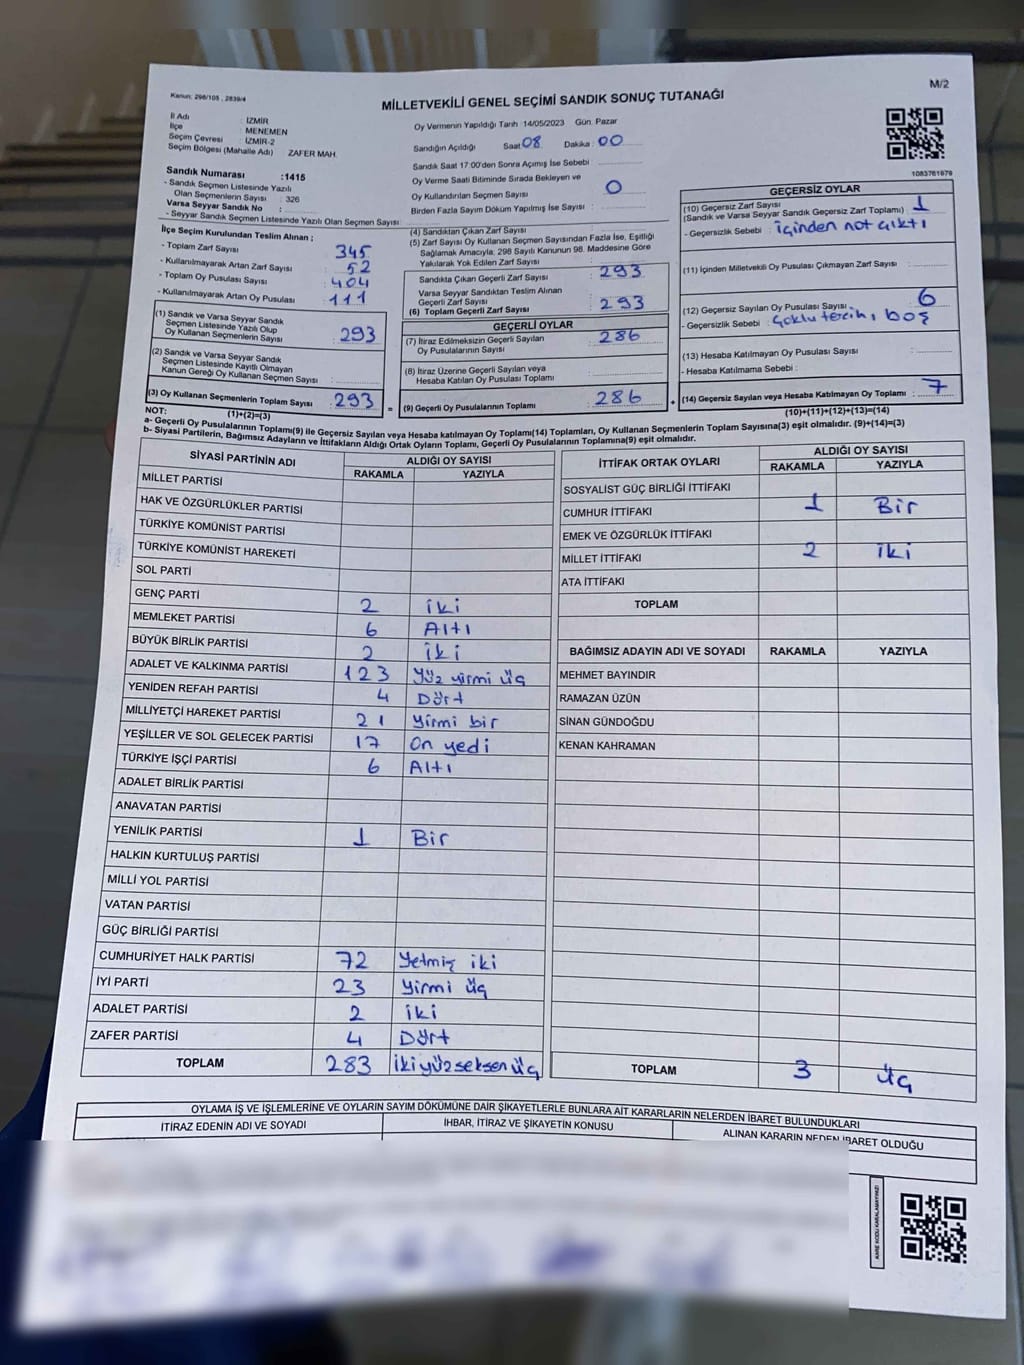 M/2
Kanun: 298/105 , 2839/4
MİLLETVEKİLİ GENEL SEÇİMİ SANDIK SONUÇ TUTANAĞI
İl Adı : İZMİR
İlçe : MENEMEN
Seçim Çevresi : İZMİR-2
Seçim Bölgesi (Mahalle Adı) ZAFER MAH.
Sandık Numarası :1415
- Sandık Seçmen Listesinde Yazılı
Olan Seçmenlerin Sayısı : 326
Varsa Seyyar Sandık No :
- Seyyar Sandık Seçmen Listesinde Yazılı Olan Seçmen Sayısı:
Oy Vermenin Yapıldığı Tarih :14/05/2023 Gün: Pazar
Sandığın Açıldığı Saat: 08 Dakika : 00
Sandık Saat 17:00'den Sonra Açımış İse Sebebi
Oy Verme Saati Bitiminde Sırada Bekleyen ve
Oy Kullandırılan Seçmen Sayısı : 0
Birden Fazla Sayım Döküm Yapılmış İse Sayısı :
1083761679
İlçe Seçim Kurulundan Teslim Alınan ;
- Toplam Zarf Sayısı : 345
- Kullanılmayarak Artan Zarf Sayısı : 52
- Toplam Oy Pusulası Sayısı : 404
- Kullanılmayarak Artan Oy Pusulası : 111
(1) Sandık ve Varsa Seyyar Sandık
Seçmen Listesinde Yazılı Olup
Oy Kullanan Seçmenlerin Sayısı : 293
(2) Sandık ve Varsa Seyyar Sandık
Seçmen Listesinde Kayıtlı Olmayan
Kanun Gereği Oy Kullanan Seçmen Sayısı :
(3) Oy Kullanan Seçmenlerin Toplam Sayısı : 293
(1)+(2)=(3)
(4) Sandıktan Çıkan Zarf Sayısı :
(5) Zarf Sayısı Oy Kullanan Seçmen Sayısından Fazla İse, Eşitliği
Sağlamak Amacıyla; 298 Sayılı Kanunun 98. Maddesine Göre
Yakılarak Yok Edilen Zarf Sayısı :
Sandıkta Çıkan Geçerli Zarf Sayısı : 293
Varsa Seyyar Sandıktan Teslim Alınan
Geçerli Zarf Sayısı
(6) Toplam Geçerli Zarf Sayısı : 293
GEÇERLİ OYLAR
(7) İtiraz Edilmeksizin Geçerli Sayılan
Oy Pusulalarının Sayısı : 286
(8) İtiraz Üzerine Geçerli Sayılan veya
Hesaba Katılan Oy Pusulası Toplamı :
= (9) Geçerli Oy Pusulalarının Toplamı : 286
GEÇERSİZ OYLAR
(10) Geçersiz Zarf Sayısı : 1
(Sandık ve Varsa Seyyar Sandık Geçersiz Zarf Toplamı)
- Geçersizlik Sebebi : içinden not çıktı
(11) İçinden Milletvekili Oy Pusulası Çıkmayan Zarf Sayısı :
(12) Geçersiz Sayılan Oy Pusulası Sayısı : 6
- Geçersizlik Sebebi : Çoklu tercih, boş
(13) Hesaba Katılmayan Oy Pusulası Sayısı :
- Hesaba Katılmama Sebebi :
+ (14) Geçersiz Sayılan veya Hesaba Katılmayan Oy Toplamı : 7
(10)+(11)+(12)+(13)=(14)
NOT:
a- Geçerli Oy Pusulalarının Toplamı(9) ile Geçersiz Sayılan veya Hesaba katılmayan Oy Toplamı(14) Toplamları, Oy Kullanan Seçmenlerin Toplam Sayısına(3) eşit olmalıdır. (9)+(14)=(3)
b- Siyasi Partilerin, Bağımsız Adayların ve İttifakların Aldığı Ortak Oyların Toplamı, Geçerli Oy Pusulalarının Toplamına(9) eşit olmalıdır.
SİYASİ PARTİNİN ADI ALDIĞI OY SAYISI
RAKAMLA YAZIYLA
MİLLET PARTİSİ
HAK VE ÖZGÜRLÜKLER PARTİSİ
TÜRKİYE KOMÜNİST PARTİSİ
TÜRKİYE KOMÜNİST HAREKETİ
SOL PARTİ
GENÇ PARTİ 2 iki
MEMLEKET PARTİSİ 6 Altı
BÜYÜK BİRLİK PARTİSİ 2 iki
ADALET VE KALKINMA PARTİSİ 123 Yüz yirmi üç
YENİDEN REFAH PARTİSİ 4 Dört
MİLLİYETÇİ HAREKET PARTİSİ 21 Yirmi bir
YEŞİLLER VE SOL GELECEK PARTİSİ 17 On yedi
TÜRKİYE İŞÇİ PARTİSİ 6 Altı
ADALET BİRLİK PARTİSİ
ANAVATAN PARTİSİ
YENİLİK PARTİSİ 1 Bir
HALKIN KURTULUŞ PARTİSİ
MİLLİ YOL PARTİSİ
VATAN PARTİSİ
GÜÇ BİRLİĞİ PARTİSİ
CUMHURİYET HALK PARTİSİ 72 Yetmiş iki
İYİ PARTİ 23 Yirmi üç
ADALET PARTİSİ 2 iki
ZAFER PARTİSİ 4 Dört
TOPLAM 283 İkiyüzseksen üç
İTTİFAK ORTAK OYLARI ALDIĞI OY SAYISI
RAKAMLA YAZIYLA
SOSYALİST GÜÇ BİRLİĞİ İTTİFAKI
CUMHUR İTTİFAKI 1 Bir
EMEK VE ÖZGÜRLÜK İTTİFAKI
MİLLET İTTİFAKI 2 iki
ATA İTTİFAKI
TOPLAM
BAĞIMSIZ ADAYIN ADI VE SOYADI RAKAMLA YAZIYLA
MEHMET BAYINDIR
RAMAZAN ÜZÜN
SİNAN GÜNDOĞDU
KENAN KAHRAMAN
TOPLAM 3 üç
OYLAMA İŞ VE İŞLEMLERİNE VE OYLARIN SAYIM DÖKÜMÜNE DAİR ŞİKAYETLERLE BUNLARA AİT KARARLARIN NELERDEN İBARET BULUNDUKLARI
İTİRAZ EDENİN ADI VE SOYADI İHBAR, İTİRAZ VE ŞİKAYETİN KONUSU ALINAN KARARIN NEDEN İBARET OLDUĞU
KARE KODU KARALAMAYINIZ!